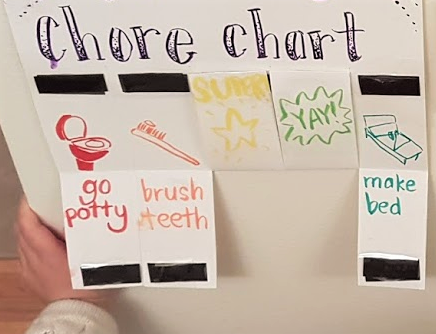 Chore chart
SUPER
YAY!
go
potty
brush
teeth
make
bed